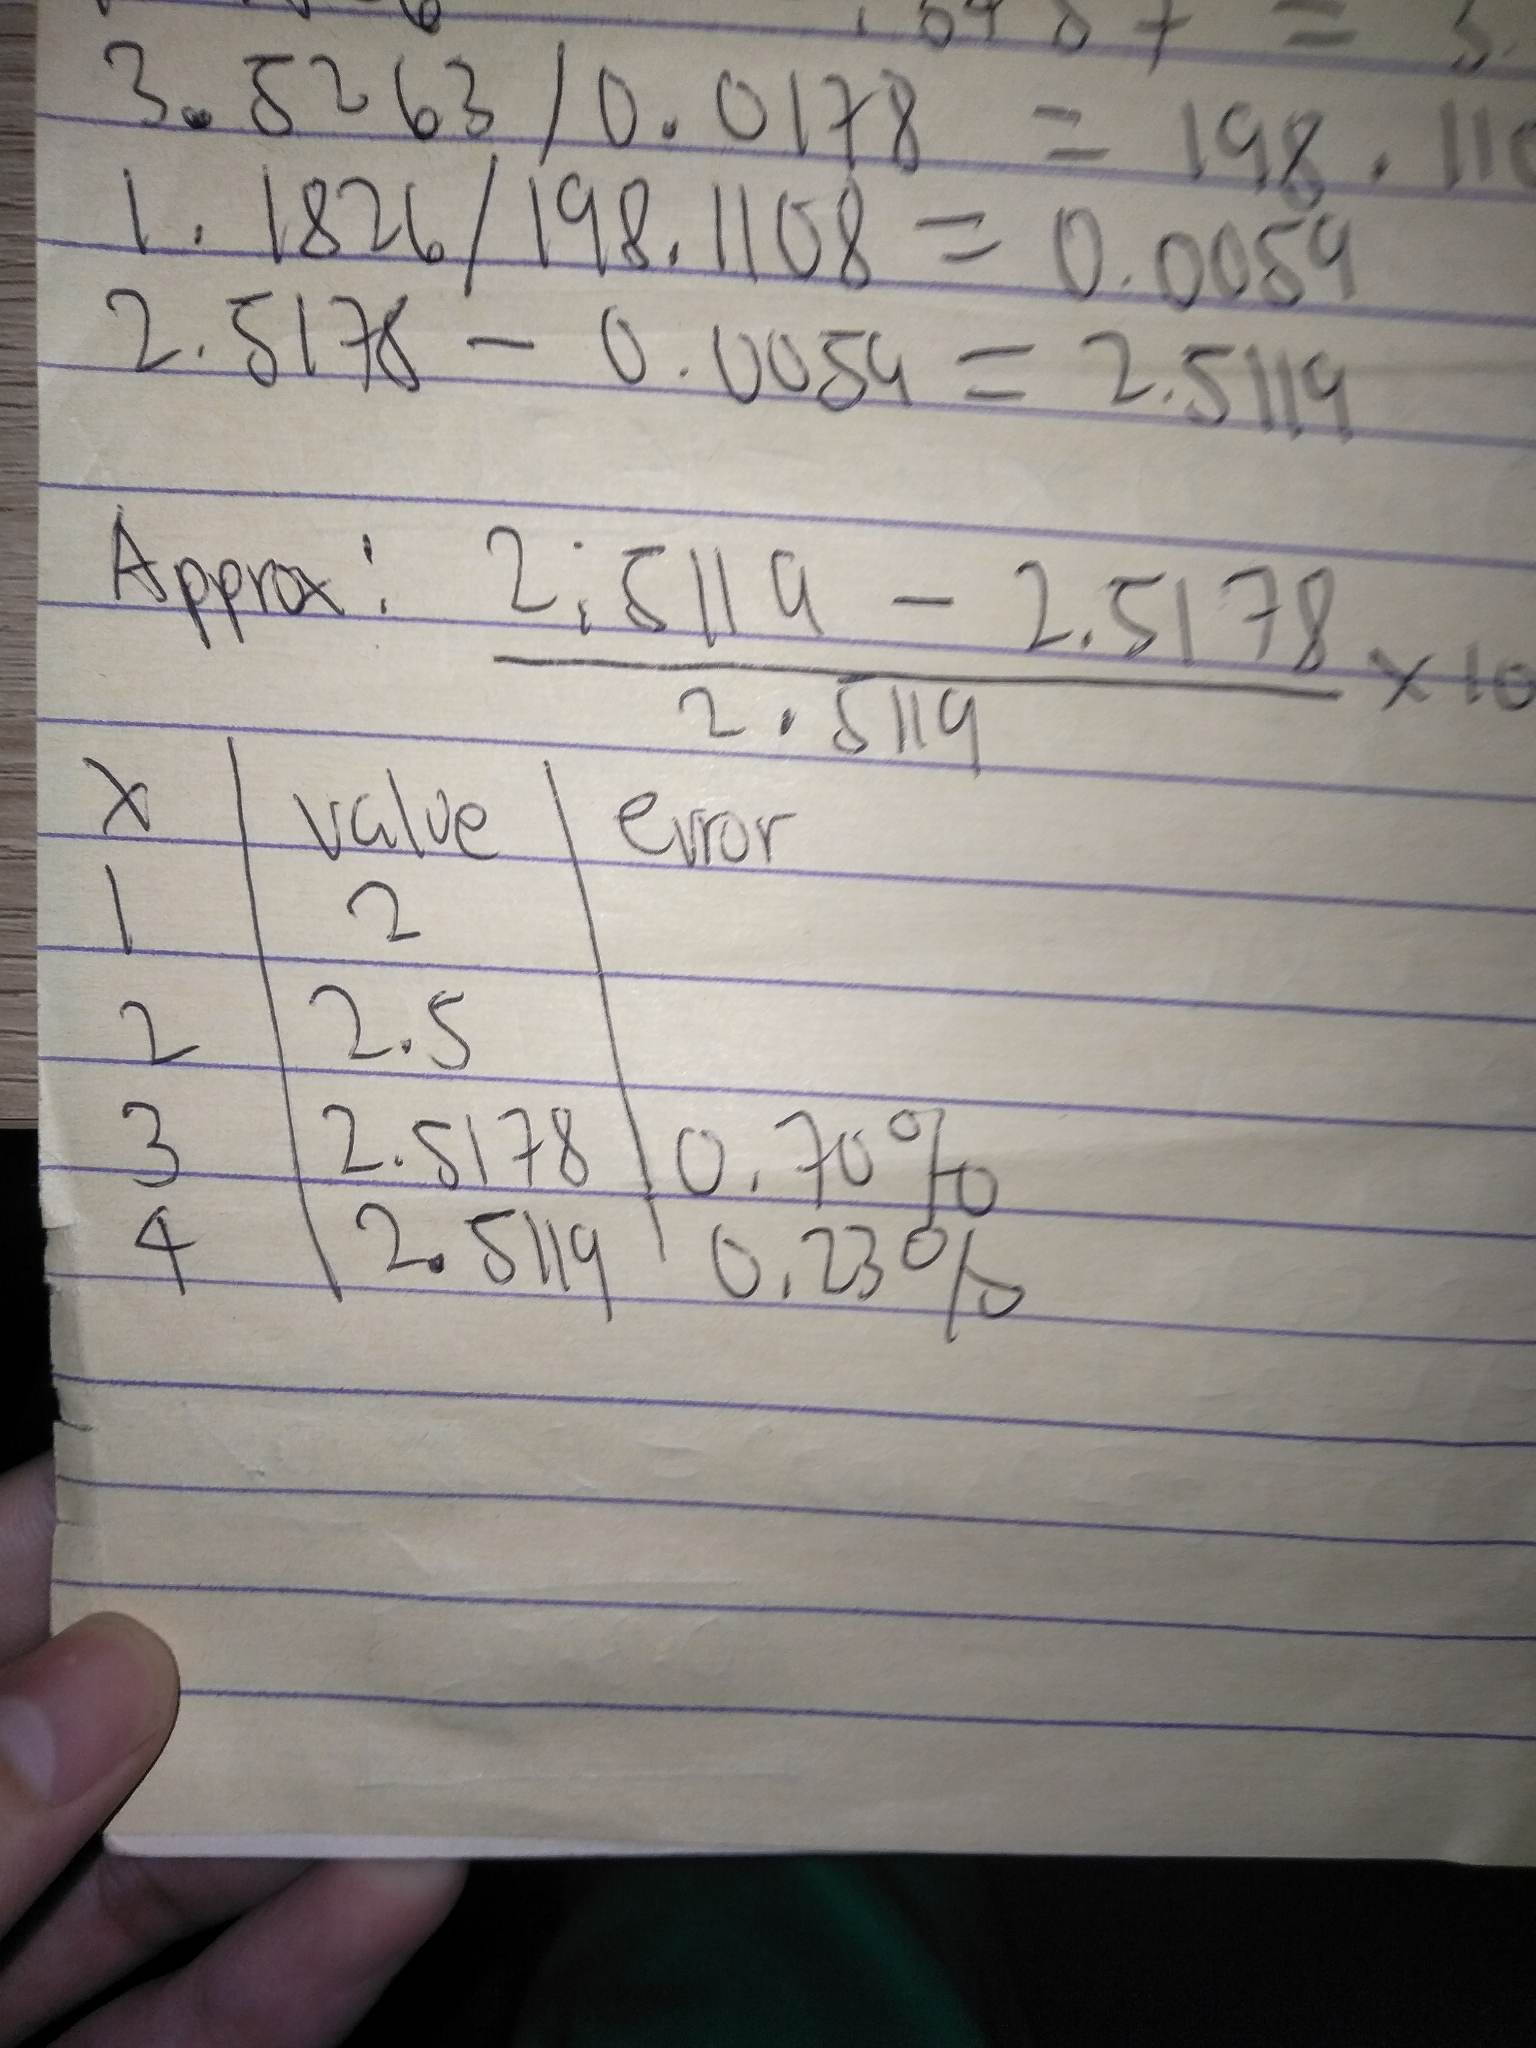 3.5263/0.0178 = 198.110
1.1826/198.1108 = 0.0059
2.5178 - 0.0059 = 2.5119
Approx: 2.5119 - 2.5178 x 10
2.5119
x value error
1 2
2 2.5
3 2.5178 0.70%
4 2.5119 0.23%